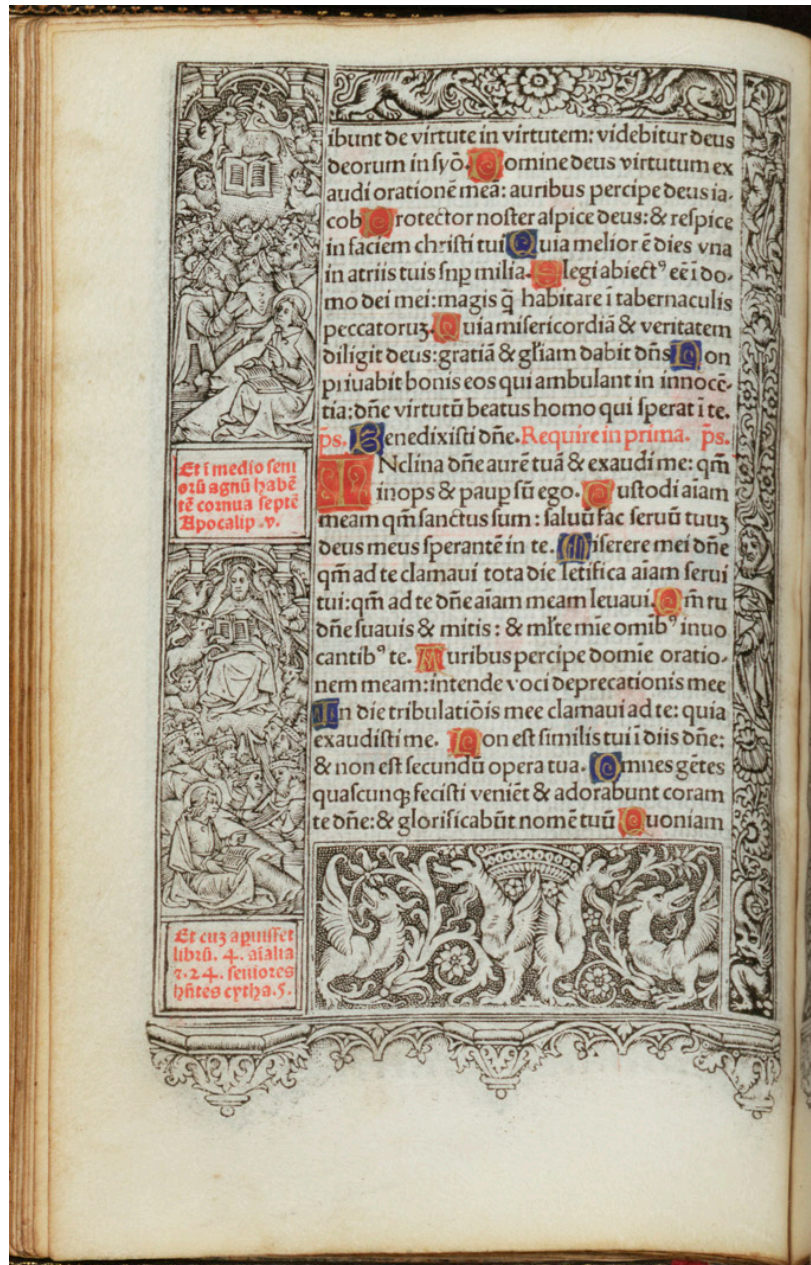 ibunt de virtute in virtutem: videbitur deus
deorum in syō. Domine deus virtutum ex
audi orationē meā: auribus percipe deus ia-
cob Protector noster aspice deus: & respice
in faciem christi tui Quia melior ē dies vna
in atriis tuis sup milia. Elegi abiectꝰ eē i do-
mo dei mei: magis q̄ habitare ī tabernaculis
peccatoruꝫ. Quia misericordiā & veritatem
diligit deus: gratiā & głiam dabit dn̄s Non
priuabit bonis eos qui ambulant in innocē-
tia: dn̄e virtutū beatus homo qui sperat ī te.
ps. Benedixisti dn̄e. Require in prima. ps.
INclina dn̄e aurē tuā & exaudi me: qm̄
inops & paup sū ego. Custodi aīam
meam qm̄ sanctus sum: saluū fac seruū tuuꝫ
deus meus sperantē in te. Miserere mei dn̄e
qm̄ ad te clamaui tota die letifica aīam serui
tui: qm̄ ad te dn̄e aīam meam leuaui. Qm̄ tu
dn̄e suauis & mitis: & młte mīe omibꝰ inuo
cantibꝰ te. Auribus percipe domīe oratio-
nem meam: intende voci deprecationis mee
In die tribulatiōis mee clamaui ad te: quia
exaudisti me. Non est similis tui ī diis dn̄e:
& non est secundū opera tua. Omnes gētes
quascunqꝫ fecisti veniēt & adorabunt coram
te dn̄e: & glorificabūt nomē tuū Quoniam
Et ī medio seni
orū agnū habē
tē cornua septē
Apocalip .v.
Et cuꝫ apuisset
librū. 4. aīalia
⁊. 24. seniores
hn̄tes cytha. 5.